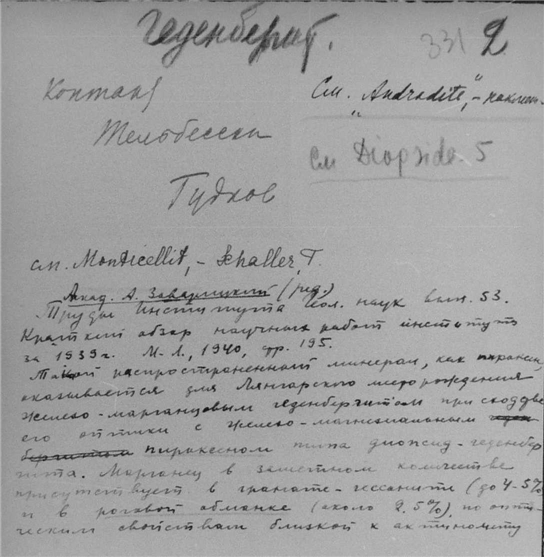 Геденберит.
331 2
Контакт
См. "Andradite", –
Тельбесски
См Diopside 5
Гудков
см. Monticellit, – Schaller, T.
Акад. А. Заварицкий (ред.)
Труды Института геол. наук вып. 53.
Краткий обзор научных работ института
за 1939 г. М.-Л., 1940, стр. 195.
Такой распространенный минерал, как пироксен,
оказывается для Лянгарского месторождения
железо-марганцовым геденбергитом при сходстве
его оптики с железо-магнезиальным
пироксеном типа диопсид-геденбер
гита. Марганец в заметном количестве
присутствует в гранате-гессоните (до 4-5%
и в роговой обманке (около 2.5%), по опти-
ческим свойствам близкой к актинолиту